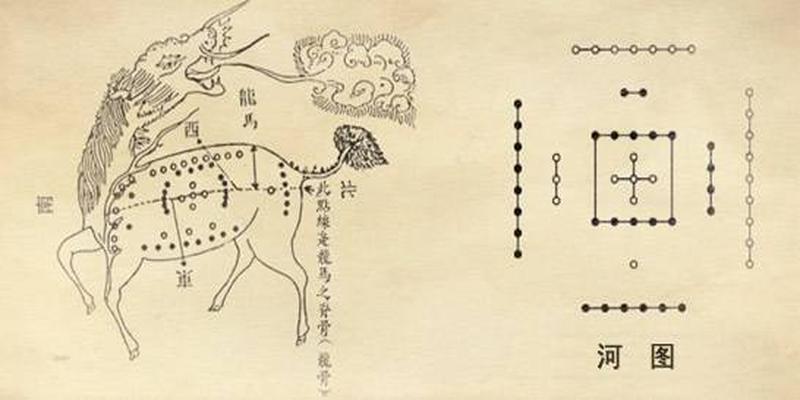 龍馬
西
南
東
北
此點線是龍馬之脊骨(龍骨)
河图